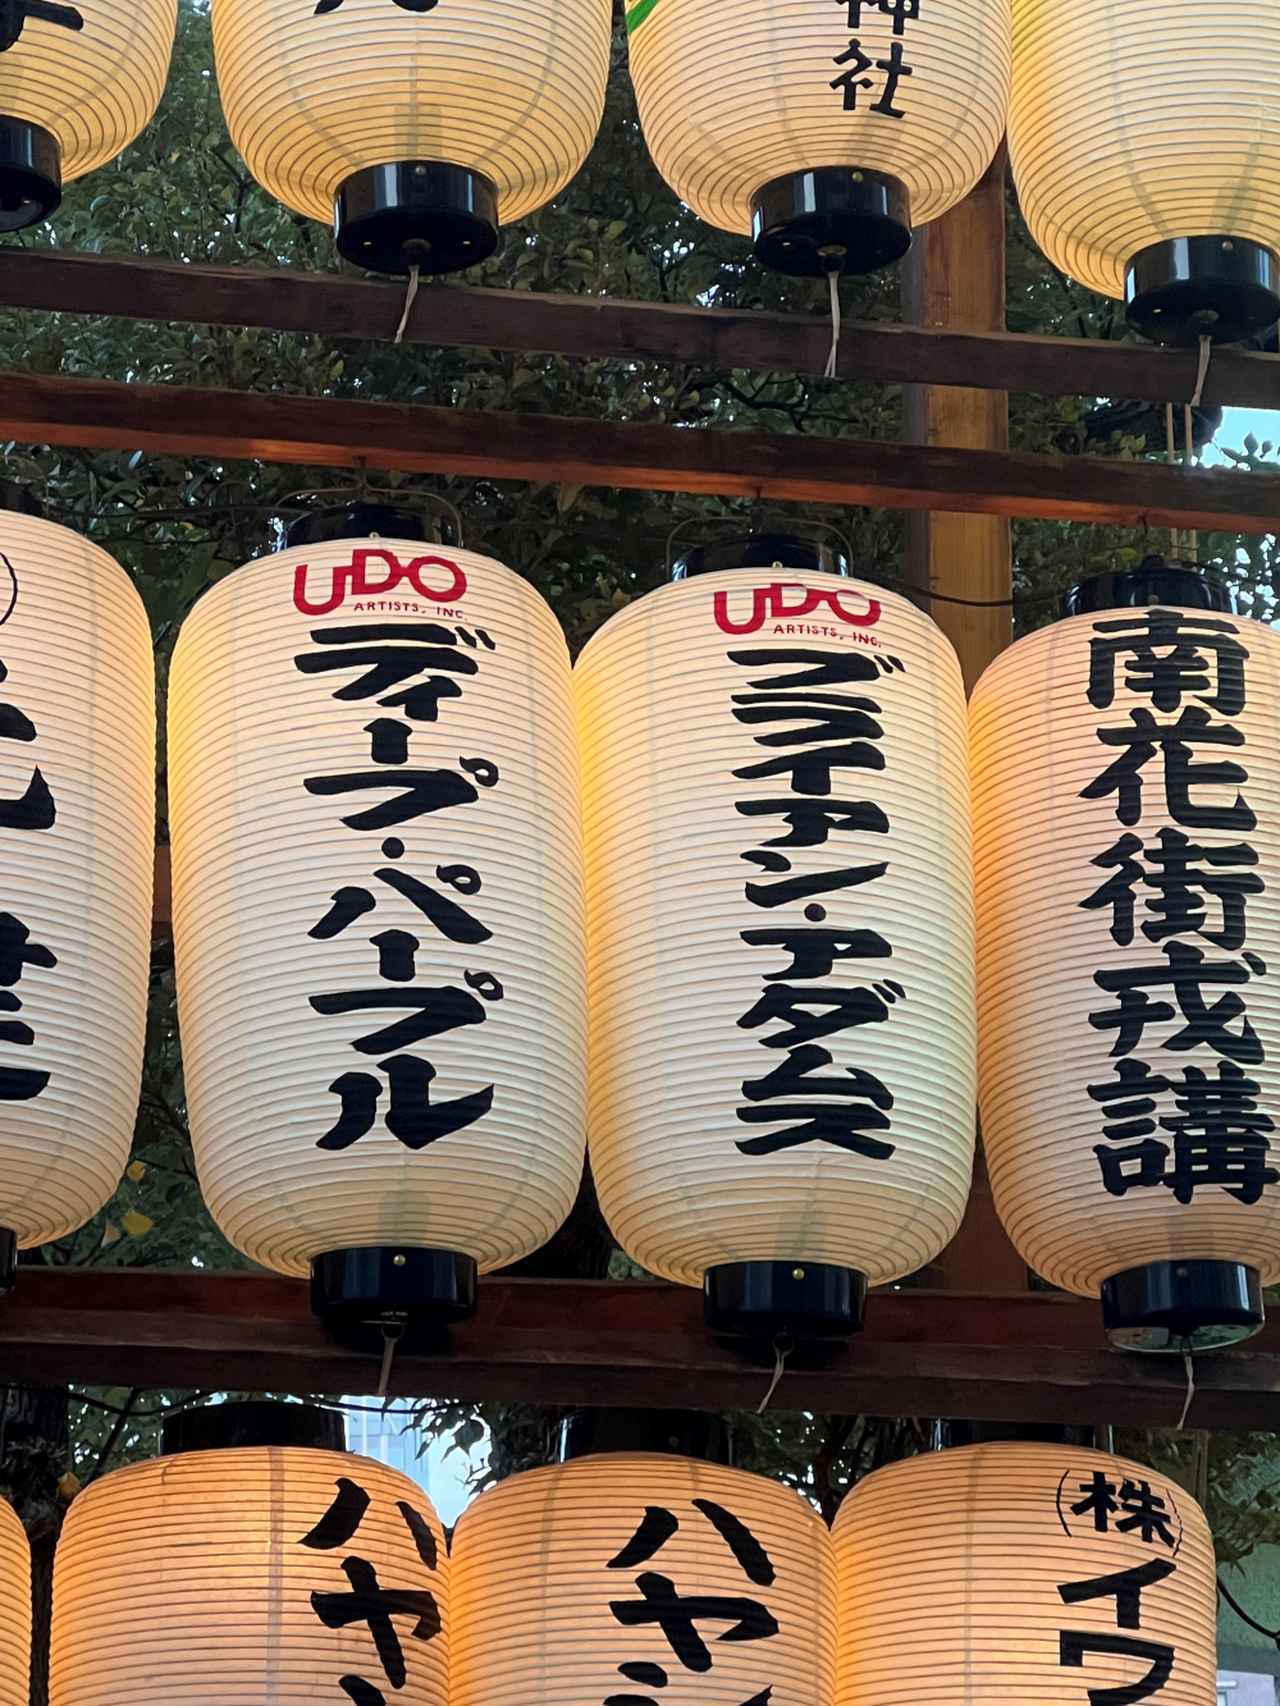 神社
UDO
ARTISTS, INC.
ディープ・パープル
UDO
ARTISTS, INC.
ブライアン・アダムス
南花街戎講
ハヤ
ハヤシ
(株)イワ